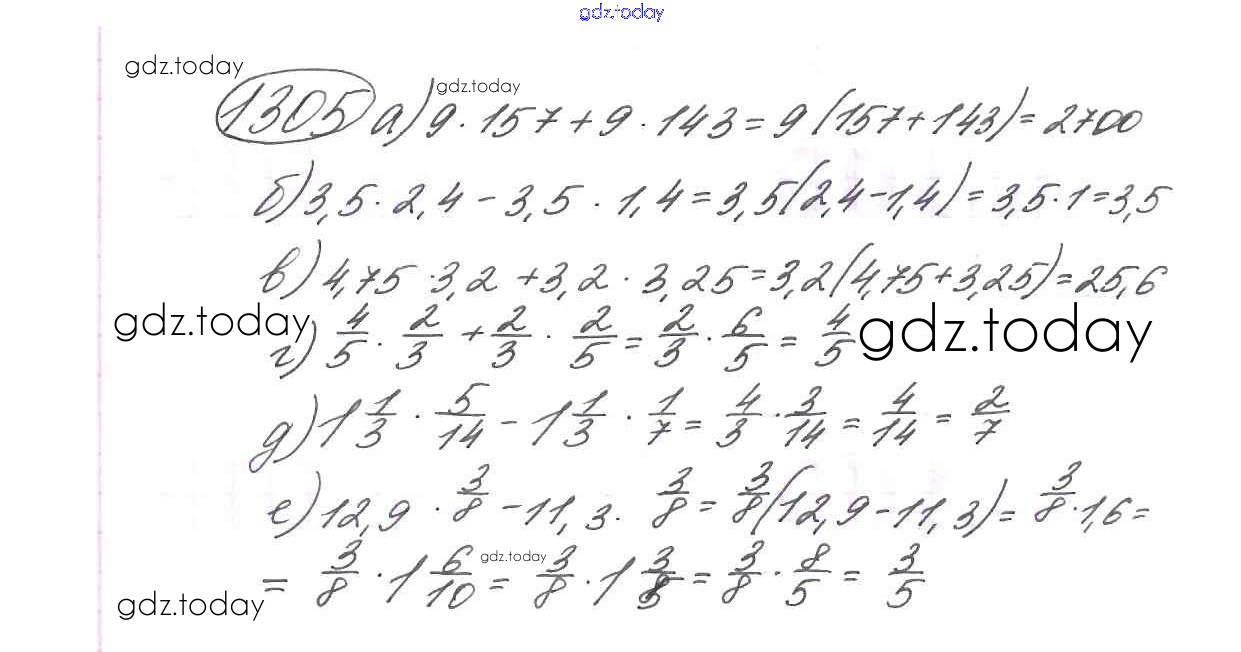 gdz.today
gdz.today
gdz.today
1305 а) 9 · 157 + 9 · 143 = 9 (157 + 143) = 2700
б) 3,5 · 2,4 - 3,5 · 1,4 = 3,5 (2,4 - 1,4) = 3,5 · 1 = 3,5
в) 4,75 · 3,2 + 3,2 · 3,25 = 3,2 (4,75 + 3,25) = 25,6
gdz.today
г) 4/5 · 2/3 + 2/3 · 2/5 = 2/3 · 6/5 = 4/5
gdz.today
д) 1 1/3 · 5/14 - 1 1/3 · 1/7 = 4/3 · 3/14 = 4/14 = 2/7
е) 12,9 · 3/8 - 11,3 · 3/8 = 3/8 (12,9 - 11,3) = 3/8 · 1,6 =
gdz.today
= 3/8 · 1 6/10 = 3/8 · 1 3/5 = 3/8 · 8/5 = 3/5
gdz.today